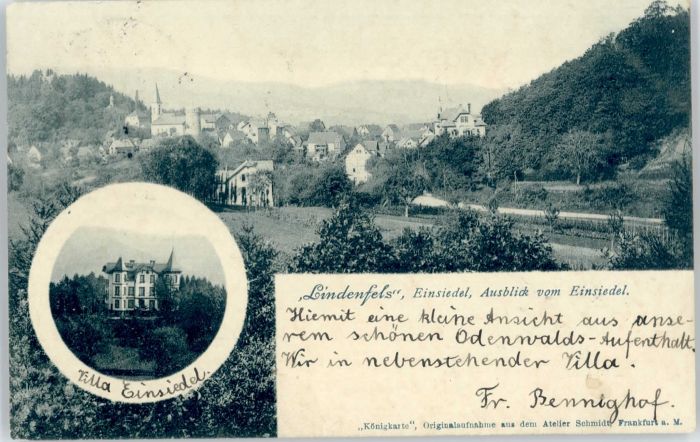 „Lindenfels“, Einsiedel, Ausblick vom Einsiedel.
Hiemit eine kleine Ansicht aus unse-
rem schönen Odenwalds-Aufenthalt.
Wir in nebenstehender Villa.
Fr. Bennighof.
Villa Einsiedel.
„Königkarte“, Originalaufnahme aus dem Atelier Schmidt, Frankfurt a. M.